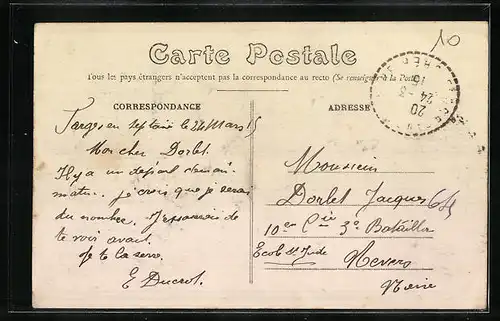 Carte Postale
Tous les pays étrangers n'acceptent pas la correspondance au recto (Se renseigner à la Poste)
CORRESPONDANCE
ADRESSE
10
20
24 -3
15
Targes en Septaine le 24 Mars 15
Mon cher Dorlet.
Il y a un départ demain
matin. je crois que je serai
du nombre. J'essaierai de
te voir avant.
Je te la serre.
E Ducrot.
Monsieur
Dorlet Jacques
10em Cie 3o Bataillon
Nevers